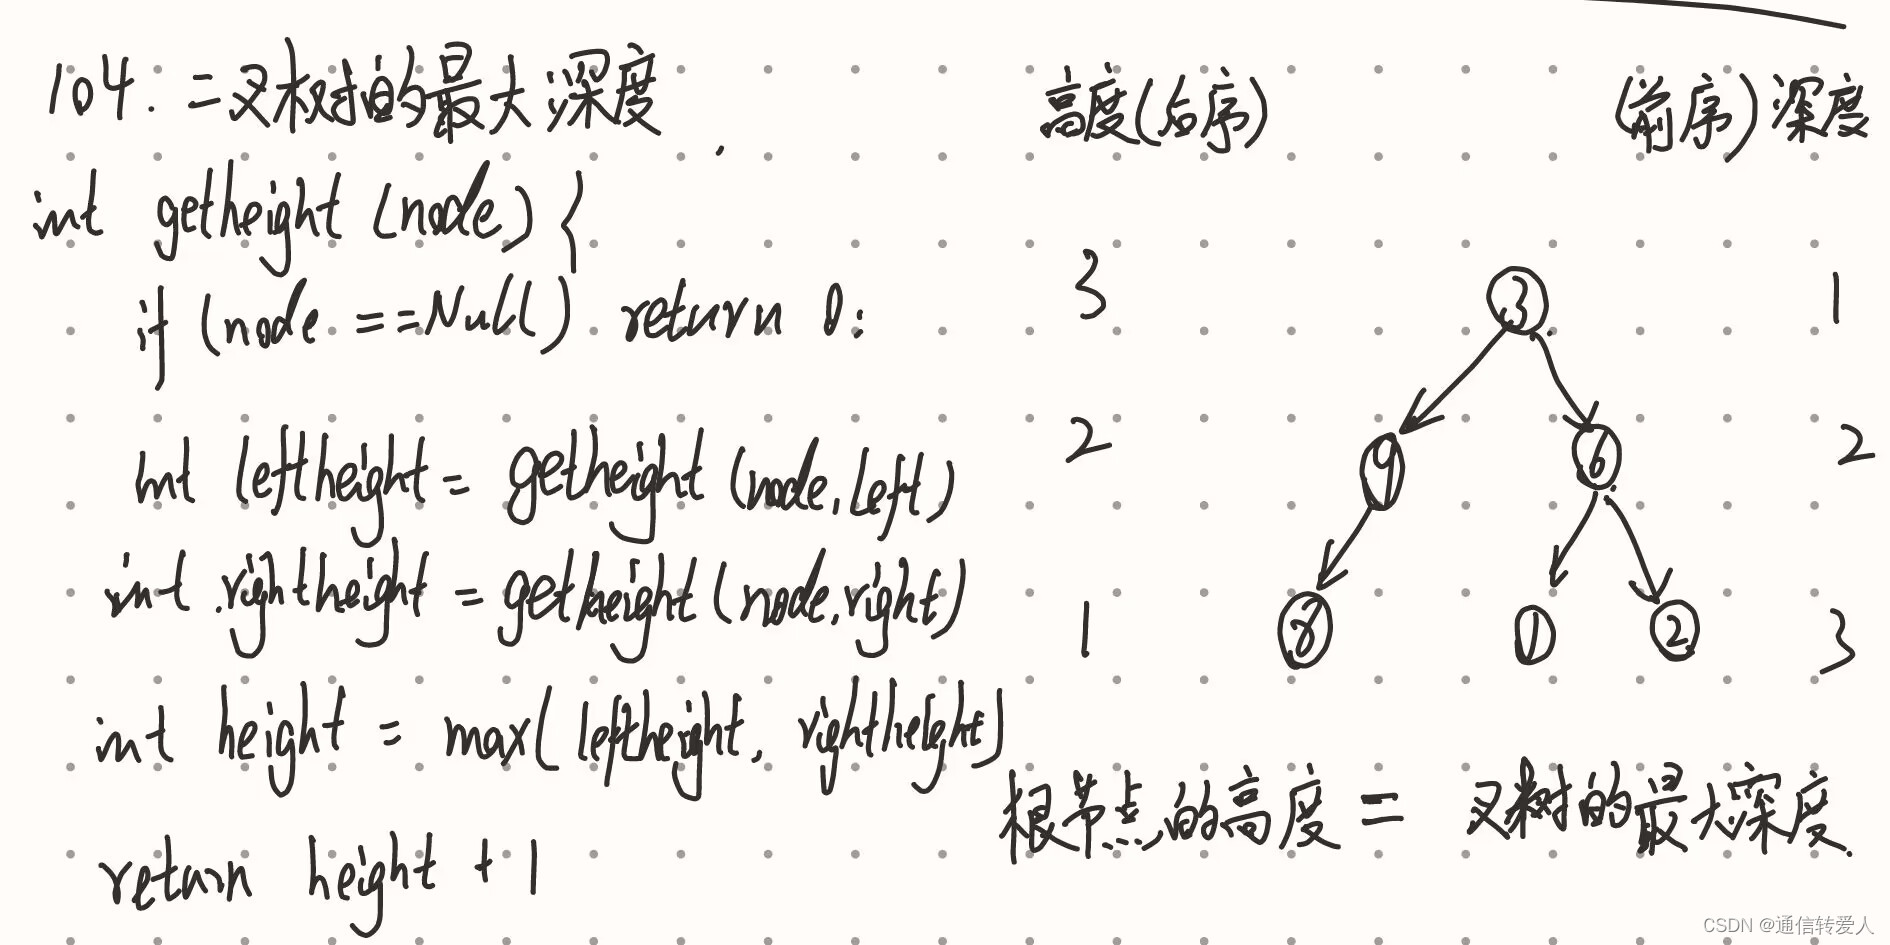 104. 二叉树的最大深度
高度(后序) (前序)深度
int getheight (node) {
if (node == Null) return 0;
int leftheight = getheight (node.left)
int rightheight = getheight (node.right)
int height = max( leftheight, rightheight)
return height + 1
3 3 1
2 9 6 2
1 8 1 2 3
根节点的高度 = 二叉树的最大深度.
CSDN @通信转爱人